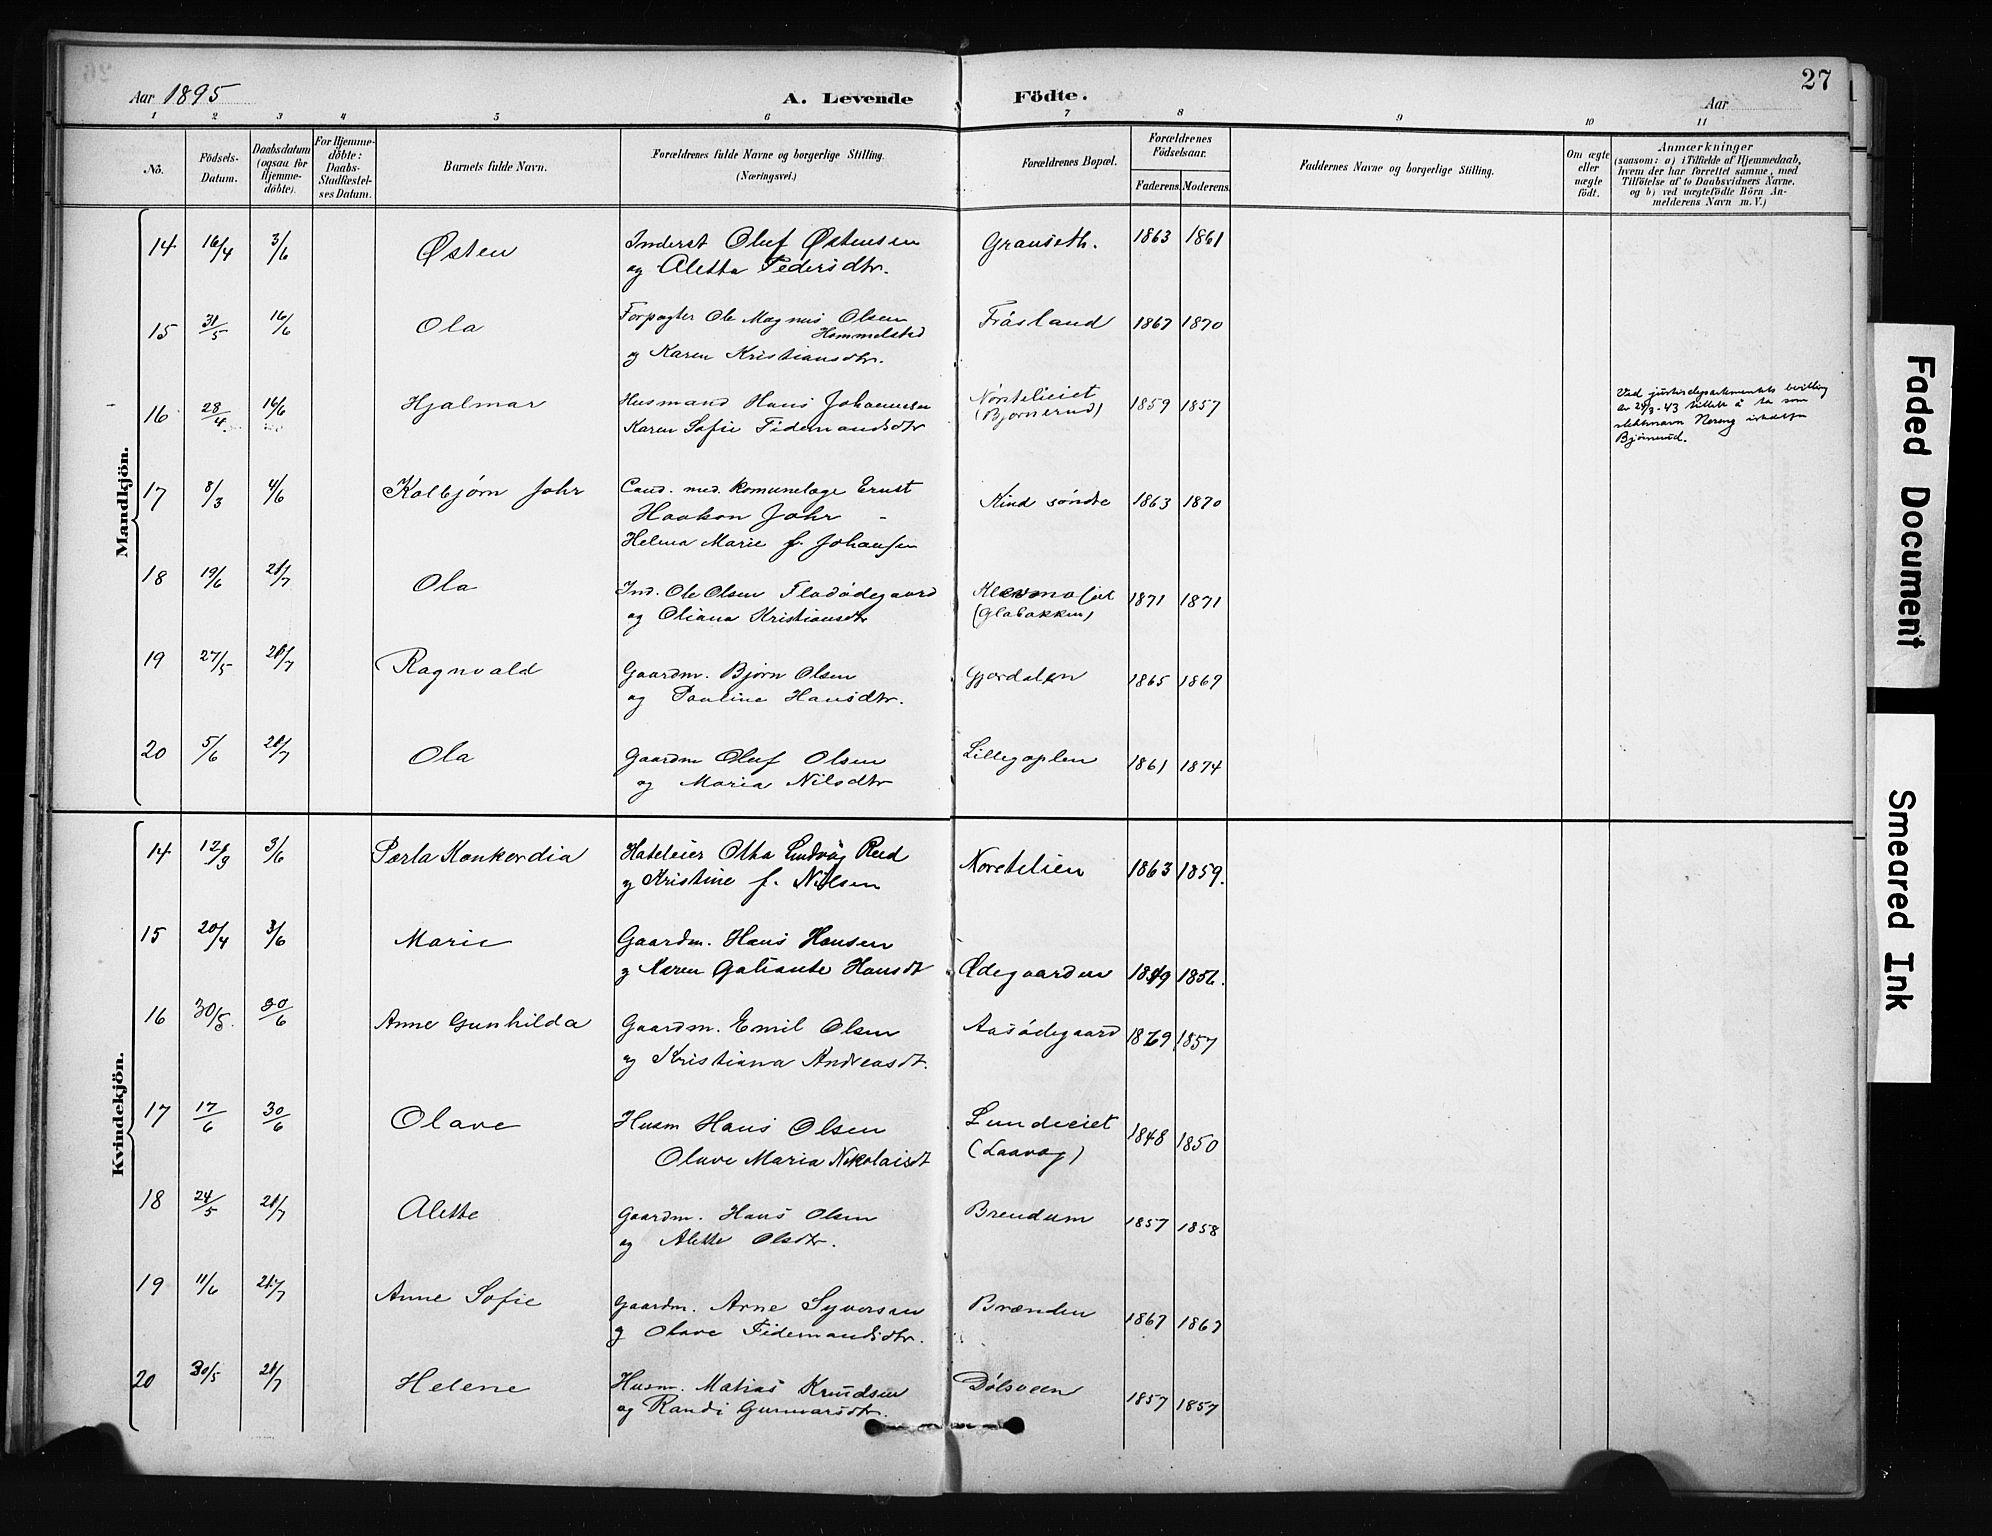 27
Aar 1895
A. Levende Födte.
Aar
1 2 3 4 5 6 7 8 9 10 11
No.
Födsels-Datum.
Daabsdatum (ogsaa for Hjemmedöbte).
For Hjemmedöbte: Daabs-Stadfæstelses Datum.
Barnets fulde Navn.
Forældrenes fulde Navne og borgerlige Stilling.
(Næringsvei.)
Forældrenes Bopæl.
Forældrenes Födselsaar.
Faderens. Moderens.
Faddernes Navne og borgerlige Stilling.
Om ægte eller uægte födt.
Anmærkninger
(saasom: a) i Tilfælde af Hjemmedaab,
hvem der har forrettet samme, med
Tilföielse af to Daabsvidners Navne,
og b) ved uægtefödte Börn Anmelderens Navn m. V.)
Mandkjön.
14 16/4 3/6 Østen Inderst Oluf Østensen Granseth. 1863 1861
og Aletta Pedersdtr.
15 31/5 16/6 Ola Forpagter Ole Magnus Olsen Fråsland 1867 1870
Hammelstad
og Karen Kristiansdtr.
16 28/4 16/6 Hjalmar Husmand Hans Johannesen Nørstelieiet 1859 1857
Karen Sofie Tidemandsdtr (Bjørnerud)
Ved justisdepartementets bevilling
av 24/3-43 tillatt å ta som
slektsnavn Nereng istedetfor
Bjørnerud.
17 8/3 4/6 Kolbjørn Johr Cand. med. komunelæge Ernst Kind søndre 1863 1870
Haakon Johr
Helma Marie f. Johansen
18 19/6 21/7 Ola Ind. Ole Olsen Fladødegaard 1871 1871
og Oliana Kristiansdtr (Glabakken)
19 27/5 21/7 Ragnvald Gaardm. Bjørn Olsen Gjerdalen 1865 1869
og Pauline Hansdtr.
20 5/6 21/7 Ola Gaardm Oluf Olsen Lillegoplen 1861 1874
og Maria Nilsdtr
Kvindekjön.
14 3/6 Perla Konkordia Otto Ludvig Reed Norstelien 1863 1859.
og Kristine f. Nilsen
15 20/4 3/6 Marie Gaardm. Hans Hansen
og Karen Galiante Hansdt Ødegaarden 1849 1856.
16 30/5. 30/6 Anne Gunhilda Gaardm. Emil Olsen Aasødegaard 1869 1857
og Kristiana Andreasdt.
17 17/6 30/6 Olave Husm Hans Olsen Lundeeiet 1848 1850
Olave Maria Nikolaisdt (Laavag)
18 24/5 21/7 Alette Gaardm. Hans Olsen Brendum 1857 1858
og Alette Olsdtr.
19 11/6 21/7 Anne Sofie Gaardm. Arne Syversen Brænden 1867 1867
og Olave Tidemandsdtr.
20 30/5 21/7 Helene Husm. Matias Knudsen Dølsveen 1857 1857
og Randi Gunnarsdtr.
Faded Document
Smeared Ink